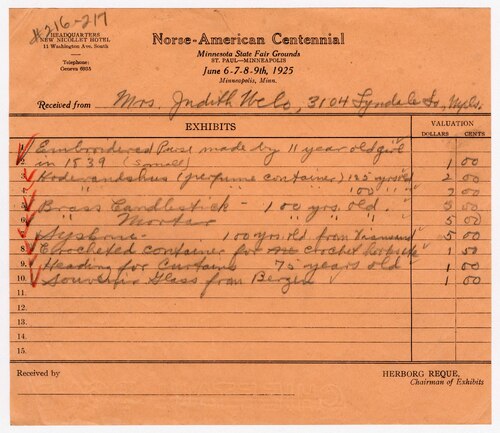 #216-217
HEADQUARTERS
NEW NICOLLET HOTEL
11 Washington Ave. South
Telephone:
Geneva 6955
Norse-American Centennial
Minnesota State Fair Grounds
ST. PAUL—MINNEAPOLIS
June 6-7-8-9th, 1925
Minneapolis, Minn.
Received from Mrs. Judith Welo, 3104 Lyndale So, Mpls.
EXHIBITS
VALUATION
DOLLARS CENTS
Embroidered Purse made by 11 year old girl
in 1839 (small) 1 00
Hodevandshus (perfume container) 125 yrs old 2 00
" " 100 " " 2 00
5. Brass Candlestick - 100 yrs. old. 5 00
6. " Mortar " " " 5 00
100 yrs. old from 5 00
8. Crocheted container for crochet 1 50
9. Heading for Curtains 75 years old 1 00
10. Souvenir Glass from Bergen 1 00
11.
12.
13.
14.
15.
Received by
HERBORG REQUE,
Chairman of Exhibits